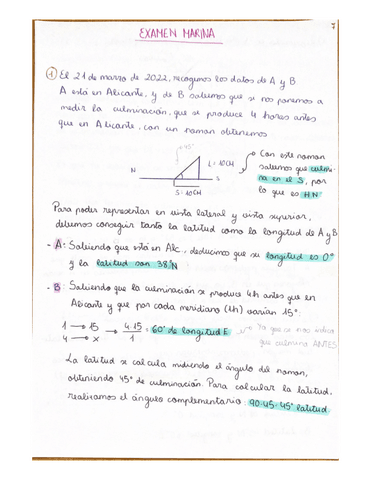 EXAMEN MARINA
1 El 21 de marzo de 2022, recogemos los datos de A y B
A está en Alicante, y de B sabemos que si nos ponemos a
medir la culminación, que se produce 4 horas antes
que en Alicante, con un nomon obtenemos
45°
L = 10CM
N
S
S = 10CM
Con este nomon
sabemos que culmi-
na en el S, por
lo que es H.N
Para poder representar en vista lateral y vista superior,
debemos conseguir tanto la latitud como la longitud de A y B
- A: Sabiendo que está en Alc., deducimos que su longitud es 0°
y la latitud son 38°N
- B: Sabiendo que la culminación se produce 4h antes que en
Alicante y que por cada meridiano (1h) varían 15°:
1 → 15
4 → x
4·15
1
= 60° de longitud E
Ya que se nos indica
que culmina ANTES
La latitud se calcula midiendo el ángulo del nomon,
obteniendo 45° de culminación. Para calcular la latitud,
realizamos el ángulo complementario: 90-45=45° latitud